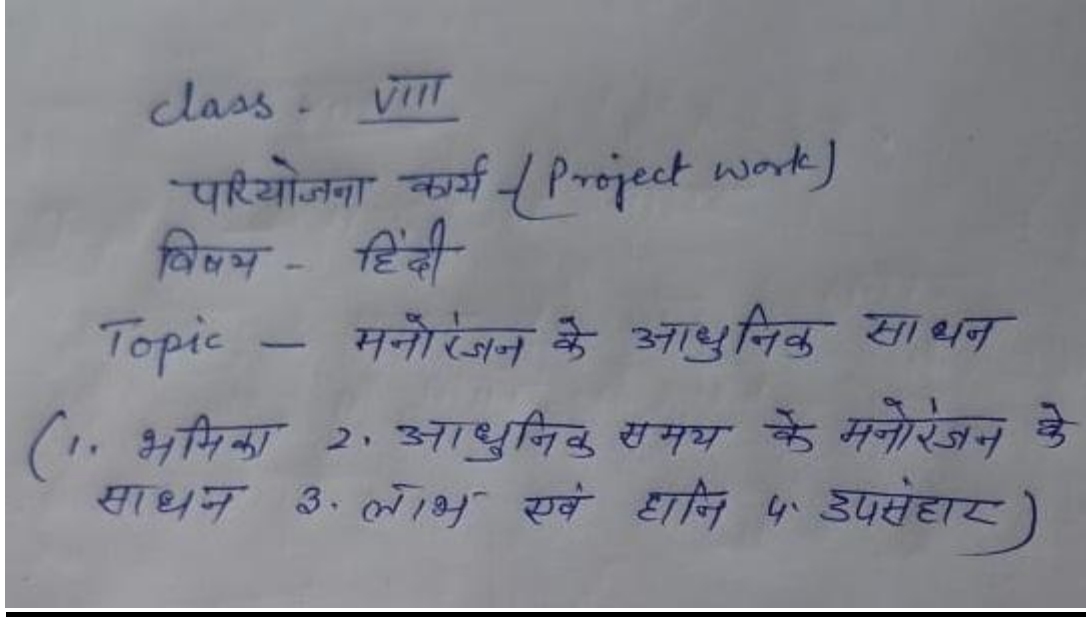 class. VIII
परियोजना कार्य - (Project work)
विषय - हिंदी
Topic - मनोरंजन के आधुनिक साधन
(1. भमिका 2. आधुनिक समय के मनोरंजन के
साधन 3. लाभ एवं हानि 4. उपसंहार)